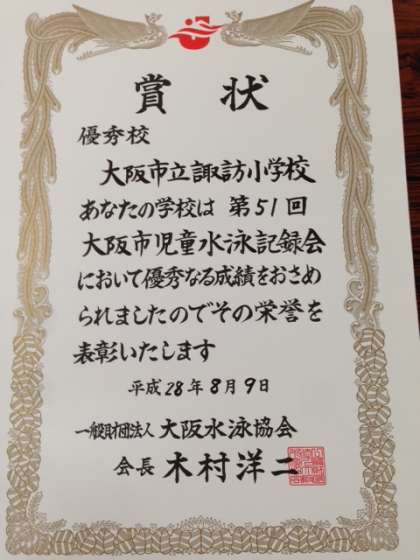 賞状
優秀校
大阪市立諏訪小学校
あなたの学校は 第51回
大阪市児童水泳記録会
において優秀なる成績をおさめ
られましたのでその栄誉を
表彰いたします
平成28年8月9日
一般財団法人 大阪水泳協会
会長 木村洋二